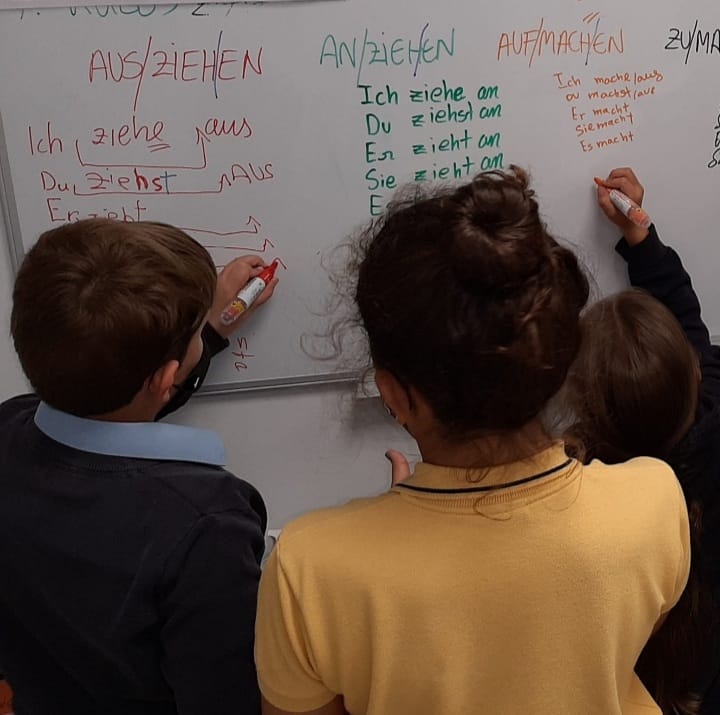 AUS/ZIEH/EN
Ich ziehe aus
Du ziehst AUS
Er zieht
AN/ZIEH/EN
Ich ziehe an
Du ziehst an
Er zieht an
Sie zieht an
E
AUF/MACH/EN
Ich mache/aus
Du machst/aus
Er macht
Sie macht
Es macht
ZU/MA